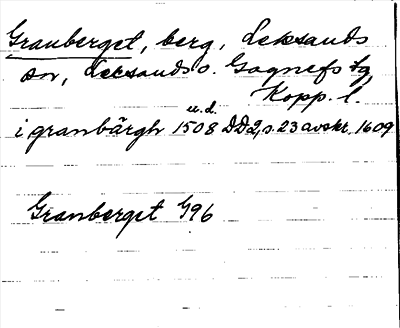 Granberget, berg, Leksands
sn, Leksands o. Gagnefs tg
Kopp. l.
u.d.
i granbärgh 1508 DD2, s. 23 avskr. 1609
Granberget G96